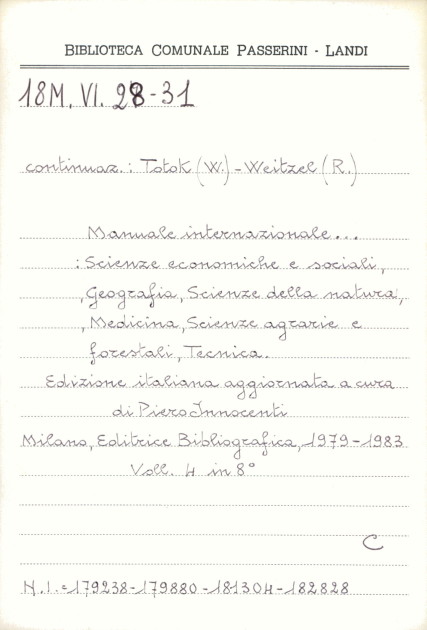 BIBLIOTECA COMUNALE PASSERINI - LANDI
18M. VI. 28-31
continuaz.: Totok (W.) - Weitzel (R.)
Manuale internazionale...
: Scienze economiche e sociali,
, Geografia, Scienze della natura,
, Medicina, Scienze agrarie e
forestali, Tecnica.
Edizione italiana aggiornata a cura
di Piero Innocenti
Milano, Editrice Bibliografica, 1979-1983
Voll. 4 in 8°
C
N.I.=179238-179880-181304-182828